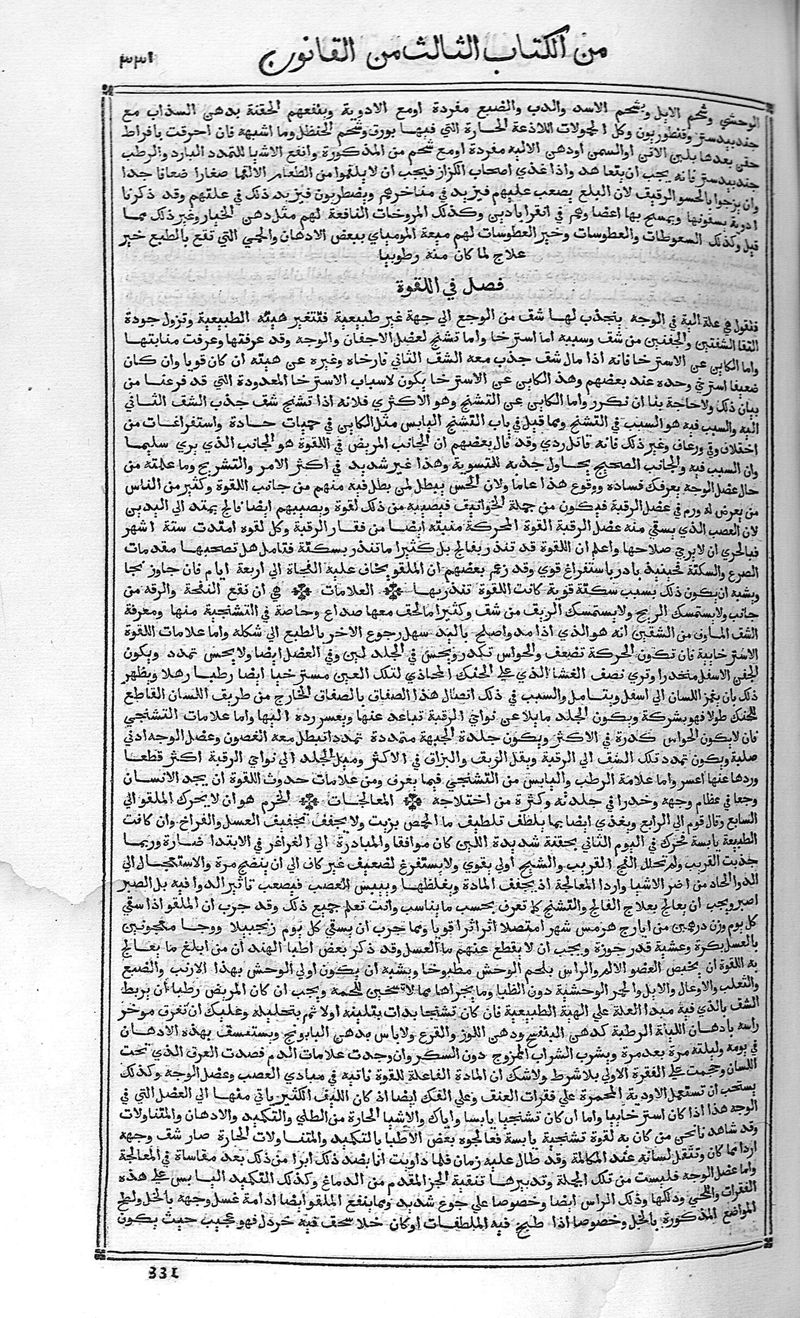 من الكتاب الثالث من القانون ٣٣١
الوحشي وشحم الابل وبشحم الاسد والدب والضبع مفردة اومع الادوية وينفعهم الحقنة بدهن السذاب مع
جندبيدستر وقنطوريون وكل الحمولات اللاذعة الحارة التي فيها بورق وشحم الحنظل وما اشبهه فان احرقت بافراط
حقن بعدها بلبن الاتن اوالسمن اودهن الالية مفردة اومع شحم من المذكورة وانفع الاشيا للتمدد البارد والرطب
جندبيدستر فانه يجب ان يتعاهد واذا غذي اصحاب الكزاز فيجب ان لا يلقموا من الطعام الا لقما صغارا ضعافا جدا
وان يوجروا بالحسو الرقيق لان البلع يصعب عليهم فيزيد في مناخرهم ويضطربون فيزيد ذلك في علتهم وقد ذكرنا
ادوية يسقونها ويمسح بها اعضاوهم في انقراباذين وكذلك المروخات النافعة لهم مثل دهن الخيار وغير ذلك مما
قيل وكذلك السعوطات والعطوسات وخير العطوسات لهم ميعة الموميای ببعض الادهان والحمى التي تقع بالطبع خير
علاج لما كان منه رطوبيا
فصل في اللقوة
فنقول هي علة الية في الوجه ينجذب لها شق من الوجه الي جهة غير طبيعية فتتغير هيئته الطبيعية وتزول جودة
التقا الشفتين والجفنين من شق وسببه اما استرخا واما تشنج لعضل الاجفان والوجه وقد عرفتها وعرفت منابتها
واما الكاين عن الاسترخا فانه اذا مال شق جذب معه الشق الثاني فارخاه وغيره عن هيئته ان كان قويا وان كان
ضعيفا استرخي وحده عند بعضهم وهذ الكاين عن الاسترخا يكون لاسباب الاسترخا المعدودة التي قد فرغنا من
بيان ذلك ولا حاجة بنا ان نكرر واما الكاين عن التشنج وهو الاكثري فلانه اذا تشنج شق جذب الشق الثاني
اليه والسبب فيه هو السبب في التشنج ومما قيل في باب التشنج اليابس مثل الكاين في حميات حادة واستفراغات من
اختلاف وقي ورعاف وغير ذلك فانه قاتل ردي وقد قال بعضهم ان الجانب المريض في اللقوة هو الجانب الذي يري سليما
وان السبب فيه والجانب الصحيح يحاول جذبه للتسوية وهذا غير شديد في اكثر الامر والتشريح وما علمته من
حال عضل الوجه يعرفك فساده ووقوع هذا عاما ولان الحس يبطل لمن بطل فيه منهم من جانب اللقوة وكثير من الناس
من يعرض له ورم في عضل الرقبة فيكون من جملة الخوانيق فيصيبه من ذلك لقوة ويصيبهم ايضا فالج يمتد الي اليدين
لان العصب الذي يسقي منه عضل الرقبة القوة المحركة منبثه ايضا من فقار الرقبة وكل لقوه امتدت ستة اشهر
فبالحري ان لا يرجي صلاحها واعلم ان اللقوة قد تنذر بفالج بل كثيرا ما تنذر بسكتة فتامل هل تصحبها مقدمات
الصرع والسكتة فحينيذ بادر باستفراغ قوي وقد زعم بعضهم ان الملقو يخاف عليه الفجاة الي اربعة ايام فان جاوز نجا
ويشبه ان يكون ذلك بسبب سكتة قوية كانت اللقوة تنذر بها العلامات هي ان تقع النفخة والزقه من
جانب ولا يستمسك الريح ولا يستمسك الريق من شق وكثيرا ما لحق معها صداع وخاصة في التشنجية منها ومعرفة
الشق الماوف من الشقين انه هو الذي اذا مد واصلح باليد سهل رجوع الاخر بالطبع الي شكله واما علامات اللقوة
الاسترخايية فان تكون الحركة تضعف والحواس تكدر ويحس في الجلد لين وفي العضل ايضا ولا يحس تمدد ويكون
الجفن الاسفل منحدرا وتري نصف الغشا الذي علي الحنك المحاذي لتلك العين مسترخيا ايضا رطبا رهلا ويظهر
ذلك بان يغمز اللسان الي اسفل ويتامل والسبب في ذلك اتصال هذا الصفاق بالصفاق الخارج من طريق اللسان القاطع
للحنك طولا فهو يشركه ويكون الجلد مايلا عن نواحي الرقبة تباعد عنها ويعسر رده اليها واما علامات التشنجي
فان لا يكون الحواس كدرة في الاكثر ويكون جلدة الجبهة متمددة تمددا تبطل معه الغضون وعضل الوجه ادني
صلبة ويكون تمدد تلك الشق الي الرقبة ويقل الريق والبزاق في الاكثر وميل الجلد الي نواحي الرقبة اكثر قطعا
وردها عنها اعسر واما علامة الرطب واليابس من التشنجي فيما يعرف ومن علامات حدوث اللقوة ان يجد الانسان
وجعا في عظام وجهه وخدرا في جلدته وكثرة من اختلاجه المعالجات الحزم هو ان لا يحرك الملقو الي
السابع وقال قوم الي الرابع ويغذي ايضا بما يلطف تلطيف ما الحمص بزيت ولا يجفف تجفيف العسل والفراخ وان كانت
الطبيعة يابسة فحرك في اليوم الثاني بحقنة شديدة اللين كان موافقا والمبادرة الي الغراغر في الابتدا ضارة وربما
جذبت القريب ولم تحلل الفج القريب والشبح اولي بقوي ولا يستفرغ لضعيف غير كاف الي ان ينضج مرة والاستعجال الي
الدوا الحاد من اضر الاشيا واردا المعالجة اذ يجفف المادة ويغلظها وييبس العصب فيصعب تاثير الدوا فيه بل الصبر
اصبر ويجب ان يعالج بعلاج الفالج والتشنج كما تعرف بحسب ما يناسب وانت تعلم جميع ذلك وقد جرب ان الملقو اذا سقي
كل يوم وزن درهمين من ايارج هرمس شهر امتصلا اثر اثرا قويا ومما جرب ان يسقي كل يوم زنجبيلا ووجا معجونين
بالعسل بكرة وعشية قدر جوزة ويجب ان لا يقطع عنهم ما العسل وقد ذكر بعض اطبا الهند ان من ابلغ ما يعالج
به اللقوة ان يخبص العضو الالم والراس بلحم الوحش مطبوخا ويشبه ان يكون اولي الوحش بهذا الارنب والضبع
والثعلب والاوعال والايل والحمر الوحشية دون الظبا وما يجراها مما لا تسخين للحمه ويجب ان كان المريض رطبا ان يربط
الشق بالذي فيه مبدا العلة علي الهية الطبيعية فان كان تشنجا بدات بتليينه اولا ثم بتحليله وعليك ان تغرق موخر
راسه بادهان اللينة الرطبة كدهن البنفسج ودهن اللوز والقرع ولاباس بدهن البابونج ويستنشق بهذه الادهان
في يومه وليلته مرة بعد مرة ويشرب الشراب الممزوج دون السكر وان وجدت علامات الدم فصدت العرق الذي تحت
اللسان وحجمت علي الفقرة الاولي بلا شرط ولا شك ان المادة الفاعلة للقوة ناتيه في مبادي العصب وعضل الوجه وكذلك
يستحب ان تستعمل الاودية المحمرة علي فقرات العنق وعلي الفك ايضا اذ كان الليف الكثير ياتي منها الي العضل التي في
الوجه هذا اذا كان استرخابيا واما ان كان تشنجيا يابسا واياك والاشيا الحارة من الطلي والتكميد والادهان والمتناولات
وقد شاهد ناتحن من كان به لقوة تشنجية يابسة فعالجوه بعض الاطبا بالتكميد والمتناولات الحارة صار شق وجهه
اردا مما كان وتثقل لسانه عند المكالمة وقد طال عليه زمان فلما داويت انا بضد ذلك ابرا من ذلك بعد مقاساة في المعالجة
واما عضل الوجه فليست من تلك الجملة وتدبيرها تنقية الجز المقدم من الدماغ وكذلك التكميد اليابس علي هذه
الفقرات واللحي ودلكها ودلك الراس ايضا وخصوصا علي جوع شديد ومما ينفع الملقو ايضا ادامة غسل وجهه بالخل ولطخ
المواضع المذكورة بالخل وخصوصا اذا طبخ فيه الملطفات اوكان خلا سحق فيه خردل فهو عجيب حيث يكون
331